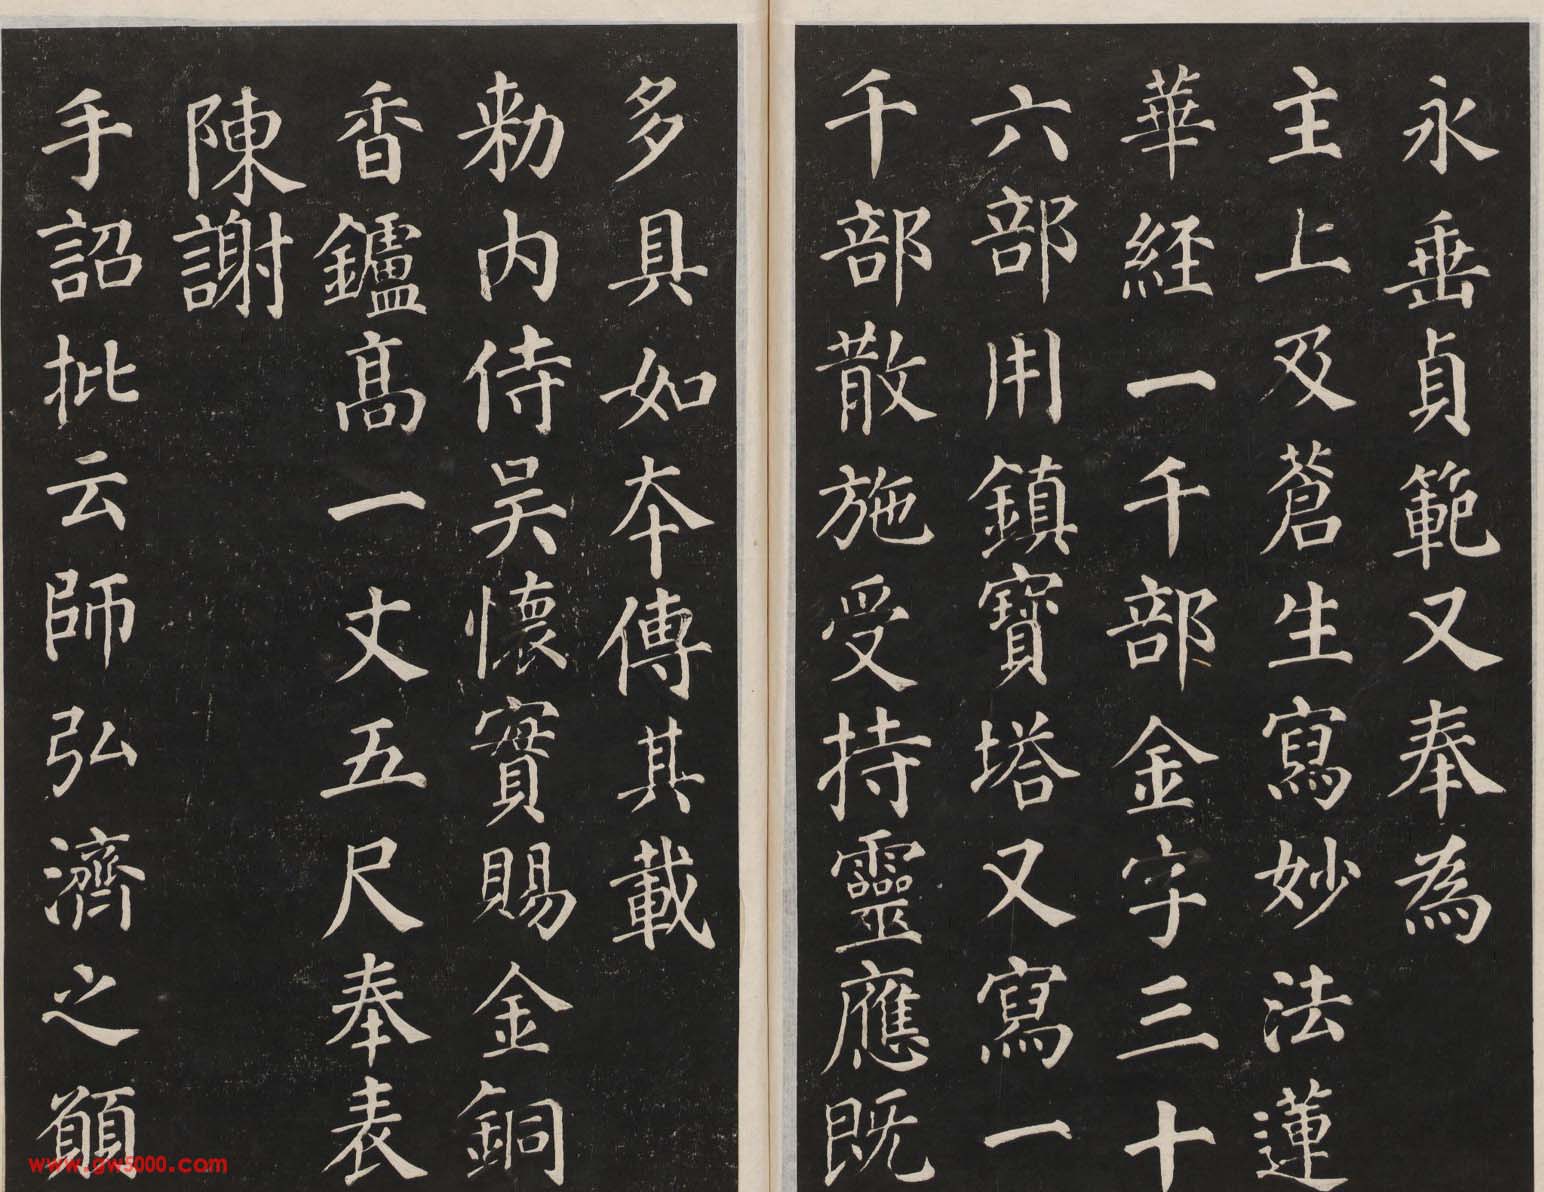 永垂貞範又奉為
主上及蒼生寫妙法蓮
華經一千部金字三十
六部用鎮寶塔又寫一
千部散施受持靈應既
多具如本傳其載
勑內侍吳懷實賜金銅
香鑪高一丈五尺奉表
陳謝
手詔批云師弘濟之願
www.gw5000.com